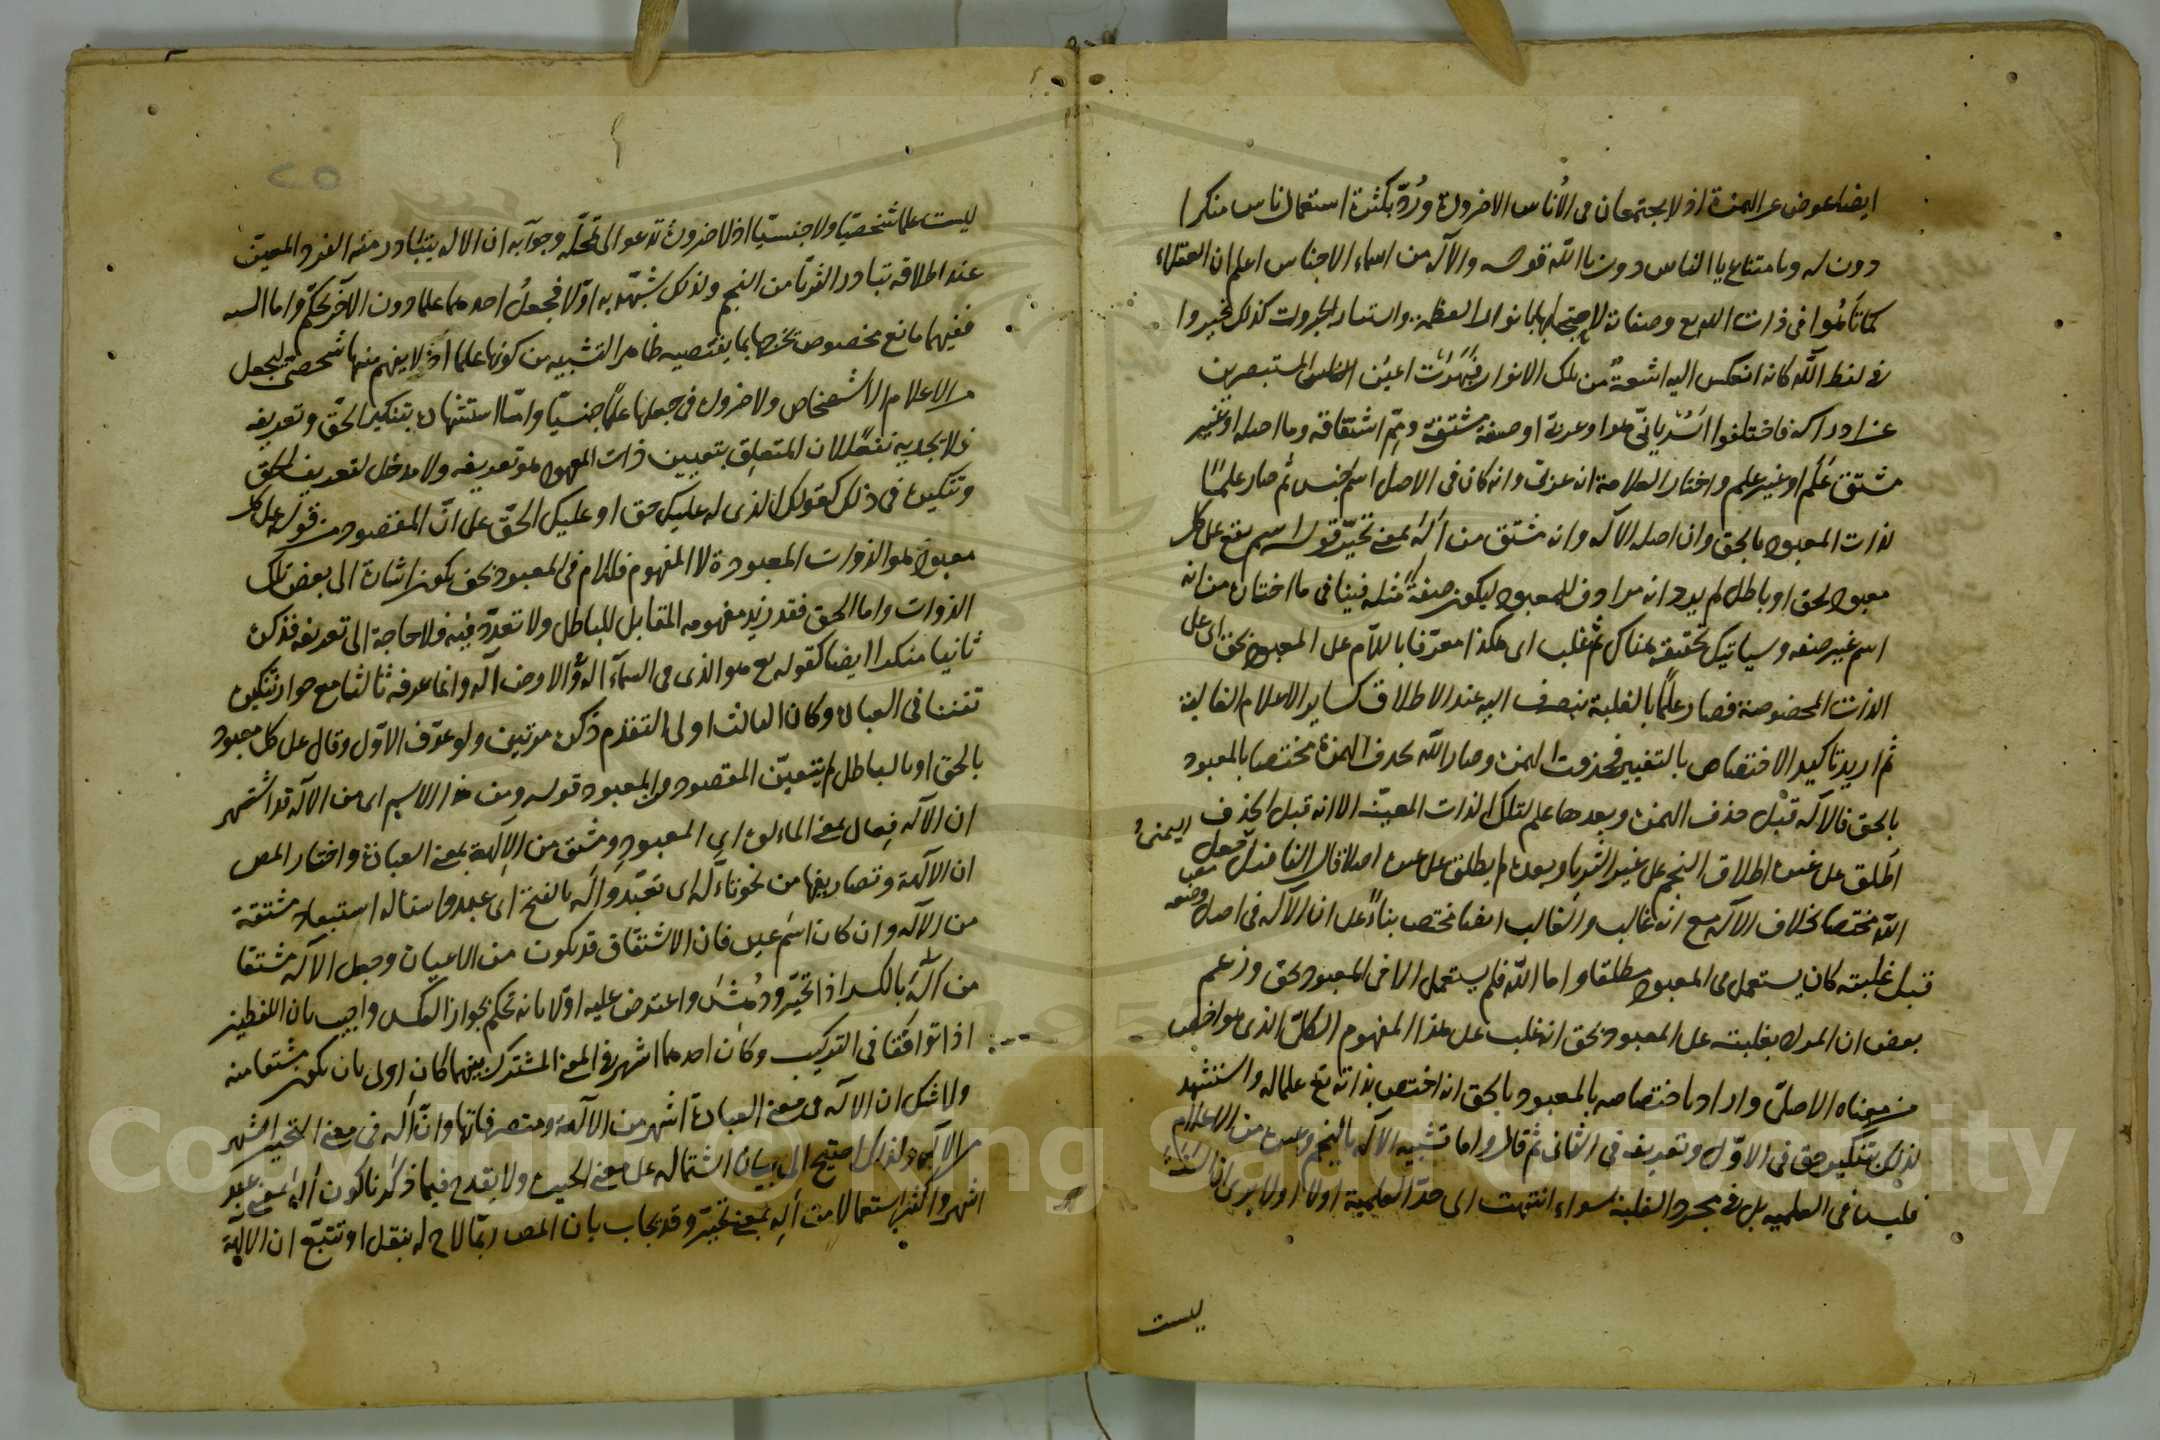 ايضا عوض عن الهمزة اذ لا يجتمعان في الأناس الا ضرورة ورُدّ بكثرة استعمال ناس منكرا
دون له وبامتناع يا الناس دون يا الله قوله والاله من اسماء الاجناس اعلم ان العقلاء
كما تاهُوا في ذات الله تع وصفاته لاحتجابها بانوار العظمة واستار الجبروت كذلك تحيروا
في لفظ الله كانه انعكس اليه اشعةٌ من تلك الانوار فبَهَرَتْ اعين المستبصرين
عن ادراكه فاختلفوا أسُرْيانيّ هو او عربيّ او صفة مشتقة ومِمّ اشتقاقه وما اصله او غير
مشتق عَلَم او غير علم واختار العلامة انه عربي وانه كان في الاصل اسم جنس ثم صار علمًا
لذات المعبود بالحق وان اصله الاله وانه مشتق من اَلِهَ بمعنى تحيّر قوله اسم يقع على كل
معبود بحق او باطل لم يرد انه مرادف للمعبود ليكون صفةً مثله فينافي ما اختاره من انه
اسم غير صفه وسياتيك تحقيقه هناك ثم غلب اى هكذا معرّفا باللام على المعبود بحق اى على
الذات المخصوصة فصار علمًا بالغلبة ينصرف اليه عند الاطلاق كساير الاعلام الغالبة
ثم اريد تاكيد الاختصاص بالتغيير فحذفت الهمزة وصار الله بحذف الهمزة مختصا بالمعبود
بالحق فالاله قبل حذف الهمزة وبعدها علم لتلك الذات المعينة الا انه قبل الحذف
اُطلق على غيره اطلاق النجم على غير الثريا وبعده لم يطلق على غيره اصلا قال الفاضل اليمنىُ جعل
الله مختصا بخلاف الاله مع انه غالب والغالب ايضا مختص بناءً على ان الاله في اصل وضعه
قبل غلبته كان يستعمل في المعبود مطلقا واما الله فلم يستعمل الا في المعبود بحق وزعم
بعض ان المراد بغلبته على المعبود بحق انه غلب على هذا المفهوم الكلّي الذى هو اخص
من معناه الاصليّ واراد باختصاصه بالمعبود بالحق انه اختص بذاته تع علما له واستشهد
لذلك بتنكير حق في الاوّل وتعريفه في الثاني ثم قال واما تشبيه الاله بالنجم وغيره من الاعلام
فليس في العلميه بل في مجرد الغلبة سواء انتهت الى حدّ العلمية اولا اولا يرى ان السَنَة
ليست
ليست علما شخصيّا ولا جنسيّا اذ لا ضرورة تدعو الى تمحّله وجوابه ان الاله يتبادر منه الفرد المعيّن
عند اطلاقه تبادر الثريّا من النجم ولذلك شبّهه به اوّلا فجعلُ احدهما علما دون الآخر تحكّم واما السنه
ففيها مانع مخصوص تخرجها بما يقتضيه ظاهر التشبيه من كونها علما اذ لا يفهم منها شخصىّ ليجعل
من الاعلام الاشخاص ولا ضرورة في جعلها علمًا جنسيّا وامّا استشهاده بتنكير الحقّ وتعريفه
فلا يجديه نفعًا لان المتعلق بتعيين ذات المعبود هو تعريفه ولا مدخل لتعريف الحق
وتنكيره في ذلك كقولك الذى له عليك حق او عليك الحقّ على انّ المقصود من قوله على كل
معبود هو الذوات المعبودة لا المفهوم فاللام في المعبود بحق يكون اشارة الى بعض تلك
الذوات واما الحق فقد زيد مفهومه المقابل للباطل ولا تعدّد فيه فلا حاجة الى تعريفه فذكره
ثانيا منكرا ايضا كقوله تع هو الذى في السماء الهٌ وّ في الارض اله وانما عرفه ثالثا مع جواز تنكيره
تفننا في العبارة وكان الثالث اولى لتقدم ذكره مرتين ولو عرّف الاوّل وقال على كل معبود
بالحق او بالباطل لم يتعيّن المقصود من المعبود قوله ومن هذا الاسم اى من الاله قد اشتهر
ان الاله فِعال بمعنى المالوه اي المعبود ومشتق من الإلٰهة بمعنى العبادة واختار المص
ان الآلهة وتصاريفها من نحو تاله اى تعبّد واَلَه بالفتح اى عبد واستاله استبعد مشتقة
من الاله وان كان اسم عين فان الاشتقاق قد يكون من الاعيان وجعل الاله مشتقا
من اَلِهَ بالكسر اذا تحيّر ودُهش واعترض عليه اوّلا بانه تحكم بجواز العكس واجيب بان اللفظين
اذا توافقا في التركيب وكان احدهما اشهر في المعنى المشترك بينهما كان اولى بان يكون مشتقا منه
ولا شك ان الاله في معنى العبادة اشهر من الالهة ومتصرفاتها وانّ اَلِه في معنى التحير اشهر
من الاله ولذلك احتيج الى بيان اشتماله على معنى الحيرة ولا يقدح فيما ذكرنا كون اَلَه بمعنى عبد
اشهر واكثر استعمالا من اَلِه بمعنى تحيّر وقد يجاب بان المص ربّما لاح له بنقل او تتبّع ان الالهة